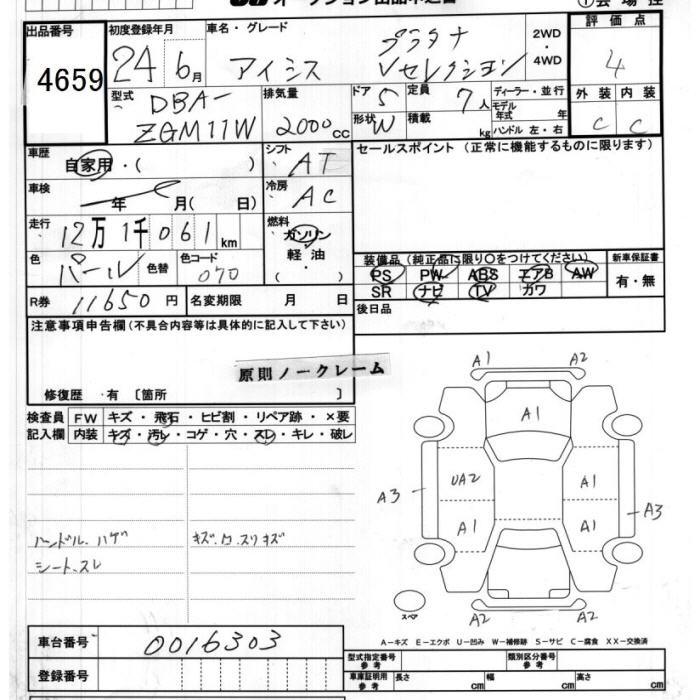 オークション出品申込書
①会場控
出品番号
4659
初度登録年月
24 6月
車名・グレード
アイシス
プラタナ
Vセレクション
2WD
・
4WD
評価点
4
外装 内装
C C
型式
DBA-
ZGM11W
排気量
2000cc
ドア 5
形状 W
定員 7人
積載 kg
ディーラー・並行
モデル年式 年
ハンドル 左・右
車歴
自家用・( )
シフト
AT
セールスポイント (正常に機能するものに限ります)
車検
年 月( 日)
冷房
AC
走行
12万1千061km
燃料
ガソリン
軽油
・
( )
色
パール
色替
色コード
070
装備品 (純正品に限り○をつけてください)
新車保証書
PS PW ABS エアB AW
SR ナビ TV カワ
有・無
R券 11650円
名変期限 月 日
後日品
注意事項申告欄(不具合内容等は具体的に記入して下さい)
原則ノークレーム
修復歴・有〔箇所 〕
検査員
記入欄
FW キズ・飛石・ヒビ割・リペア跡・×要
内装 キズ・汚レ・コゲ・穴・スレ・キレ・破レ
ハンドル、ハゲ
シート、スレ
A1 A2
A1
UA2 A1
A3 A3
A1 A1
A2 A2
スペア
A-キズ E-エクボ U-凹み W-補修跡 S-サビ C-腐食 XX-交換済
車台番号 0016303
登録番号
型式指定番号
参考
類別区分番号
参考
車庫証明用
参考
長さ cm 幅 cm 高さ cm